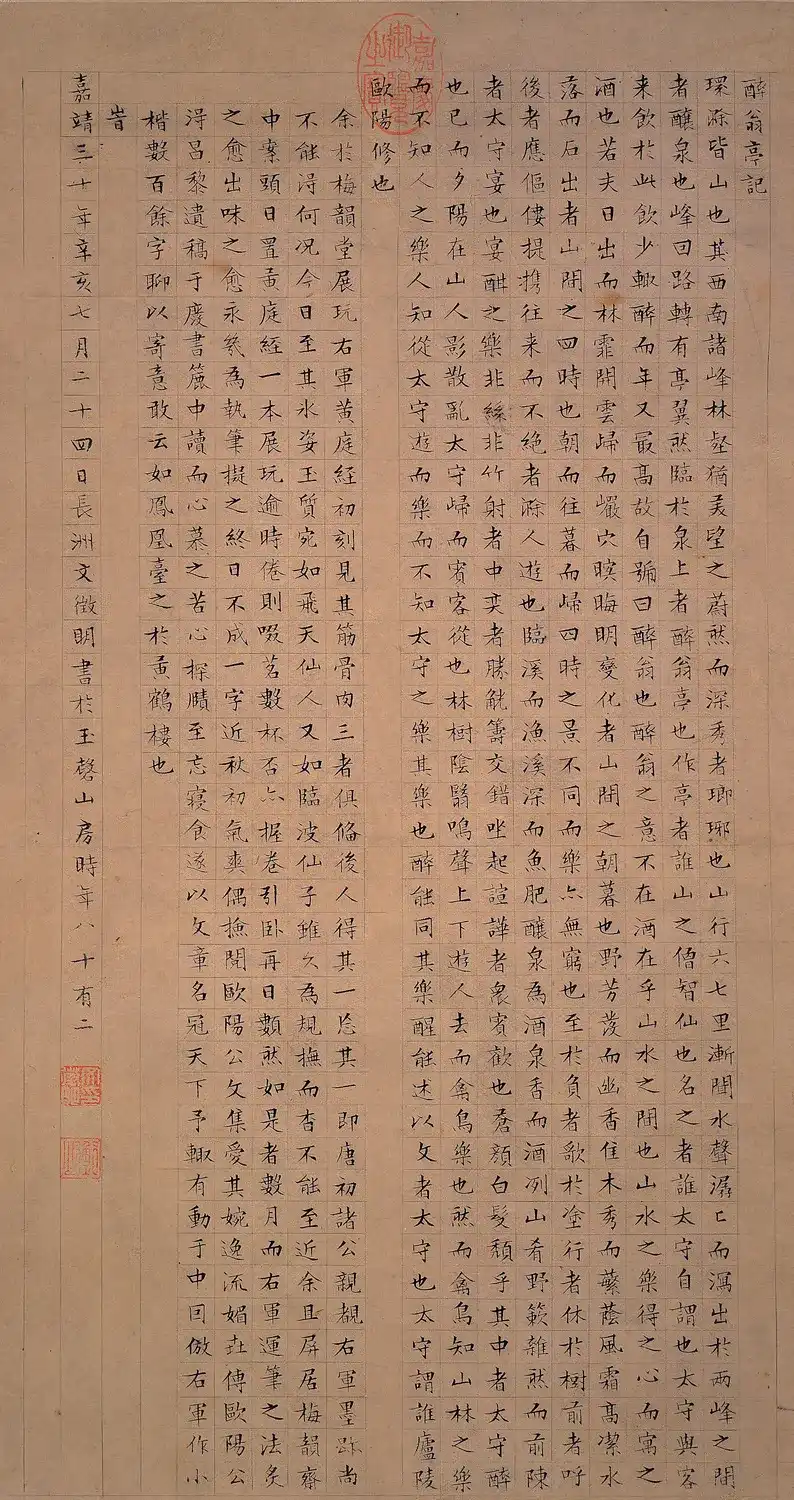 醉翁亭記
環滁皆山也其西南諸峰林壑猶美望之蔚然而深秀者瑯琊也山行六七里漸聞水聲潺〻而瀉出於兩峰之間
者釀泉也峰回路轉有亭翼然臨於泉上者醉翁亭也作亭者誰山之僧智仙也名之者誰太守自謂也太守與客
来飲於此飲少輙醉而年又最高故自號曰醉翁也醉翁之意不在酒在乎山水之間也山水之樂得之心而寓之
酒也若夫日出而林霏開雲歸而巖穴暝晦明變化者山間之朝暮也野芳發而幽香佳木秀而蘩蔭風霜高潔水
落而石出者山間之四時也朝而往暮而歸四時之景不同而樂亦無窮也至於負者歌於塗行者休於樹前者呼
後者應傴僂提攜往来而不絶者滁人遊也臨溪而漁溪深而魚肥釀泉為酒泉香而酒冽山肴野蔌雜然而前陳
者太守宴也宴酣之樂非絲非竹射者中奕者勝觥籌交錯坐起諠譁者衆賓歡也蒼顏白髮頹乎其中者太守醉
也已而夕陽在山人影散亂太守歸而賓客從也林樹陰翳鳴聲上下遊人去而禽鳥樂也然而禽鳥知山林之樂
而不知人之樂人知從太守遊而樂而不知太守之樂其樂也醉能同其樂醒能述以文者太守也太守謂誰廬陵
歐陽修也
余於梅韻堂展玩右軍黄庭經初刻見其筋骨肉三者俱俻後人得其一忘其一即唐初諸公親覩右軍墨跡尚
不能淂何况今日至其氷姿玉質宛如飛天仙人又如臨波仙子雖久為規撫而杳不能至近余且屏居梅韻齋
中案頭日置黄庭經一本展玩逾時倦則啜茗數杯否亦握卷引卧再日數然如是者數月而右軍運筆之法炙
之愈出味之愈永幾為執筆擬之終日不成一字近秋初氣爽偶撿閱歐陽公文集愛其婉逸流媚世傳歐陽公
淂昌黎遺稿于慶書簏中讀而心慕之苦心探賾至忘寢食遂以文章名冠天下予輙有動于中囙倣右軍作小
楷數百餘字聊以寄意敢云如鳳凰臺之於黄鶴樓也
旹
嘉靖三十年辛亥七月二十四日長洲文徵明書於玉磬山房時年八十有二